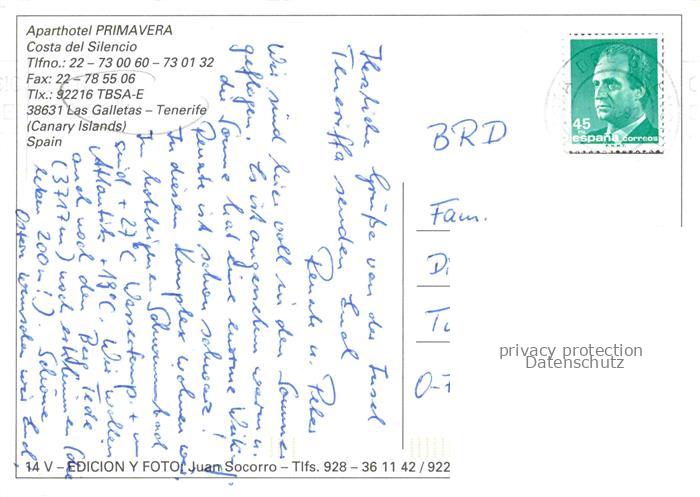 Aparthotel PRIMAVERA
Costa del Silencio
Tlfno.: 22 – 73 00 60 – 73 01 32
Fax: 22 – 78 55 06
Tlx.: 92216 TBSA-E
38631 Las Galletas – Tenerife
(Canary Islands)
Spain
45
españa correos
BRD
Fam.
D
T
O-7
privacy protection
Datenschutz
Herzliche Grüße von der Insel
Teneriffa senden Euch
Renate u. Peter
Wir sind hier voll in den Sommer
geflogen. Es ist angenehm warm u.
die Sonne hat eine enorme
Renate ist schon schwarz!
In diesem Komplex wohnen wir.
Im hoteleigenen Schwimmbad
sind + 27°C Wassertemp. + im
Atlantik + 19°C. Wir wollen
auch noch den Berg Teide
(3717m) noch erklimmen (die
letzten 200m!). Schöne
Ostern wünschen wir Euch.
14 V – EDICION Y FOTO: Juan Socorro – Tlfs. 928 – 36 11 42 / 922